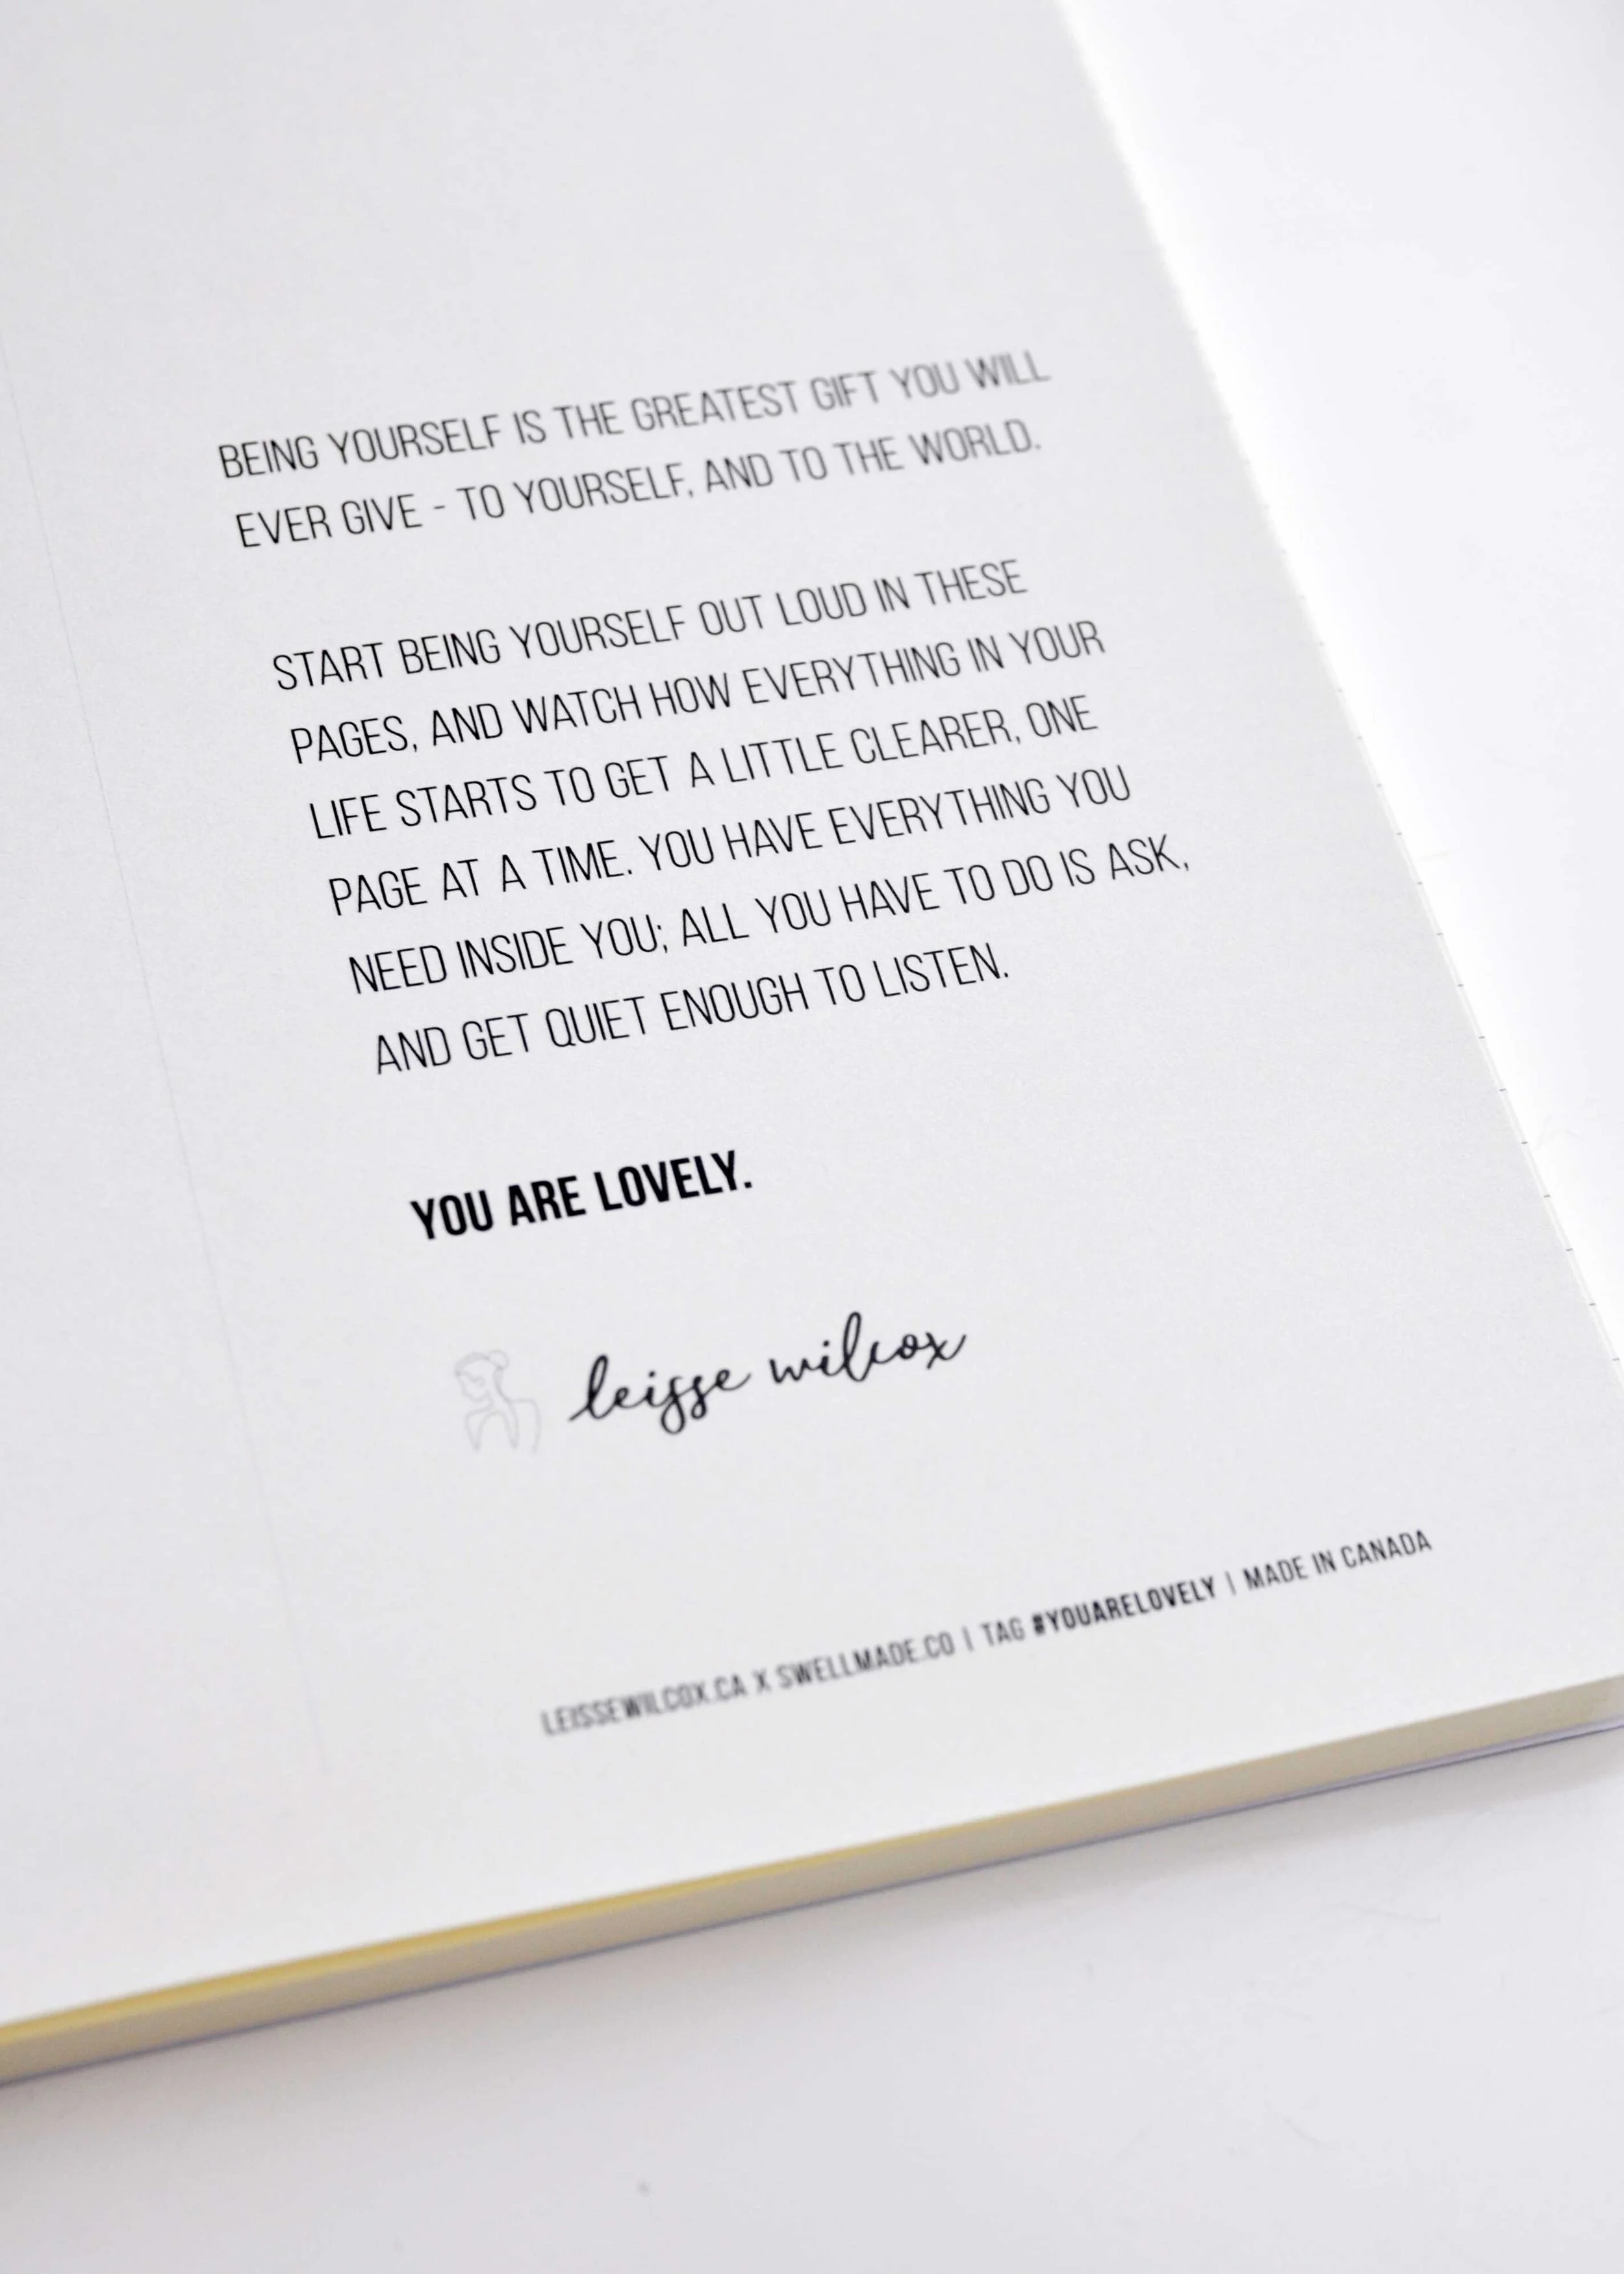 BEING YOURSELF IS THE GREATEST GIFT YOU WILL
EVER GIVE - TO YOURSELF, AND TO THE WORLD.
START BEING YOURSELF OUT LOUD IN THESE
PAGES, AND WATCH HOW EVERYTHING IN YOUR
LIFE STARTS TO GET A LITTLE CLEARER, ONE
PAGE AT A TIME. YOU HAVE EVERYTHING YOU
NEED INSIDE YOU; ALL YOU HAVE TO DO IS ASK,
AND GET QUIET ENOUGH TO LISTEN.
YOU ARE LOVELY.
leisse wilcox
LEISSEWILCOX.CA X SWELLMADE.CO | TAG #YOUARELOVELY | MADE IN CANADA